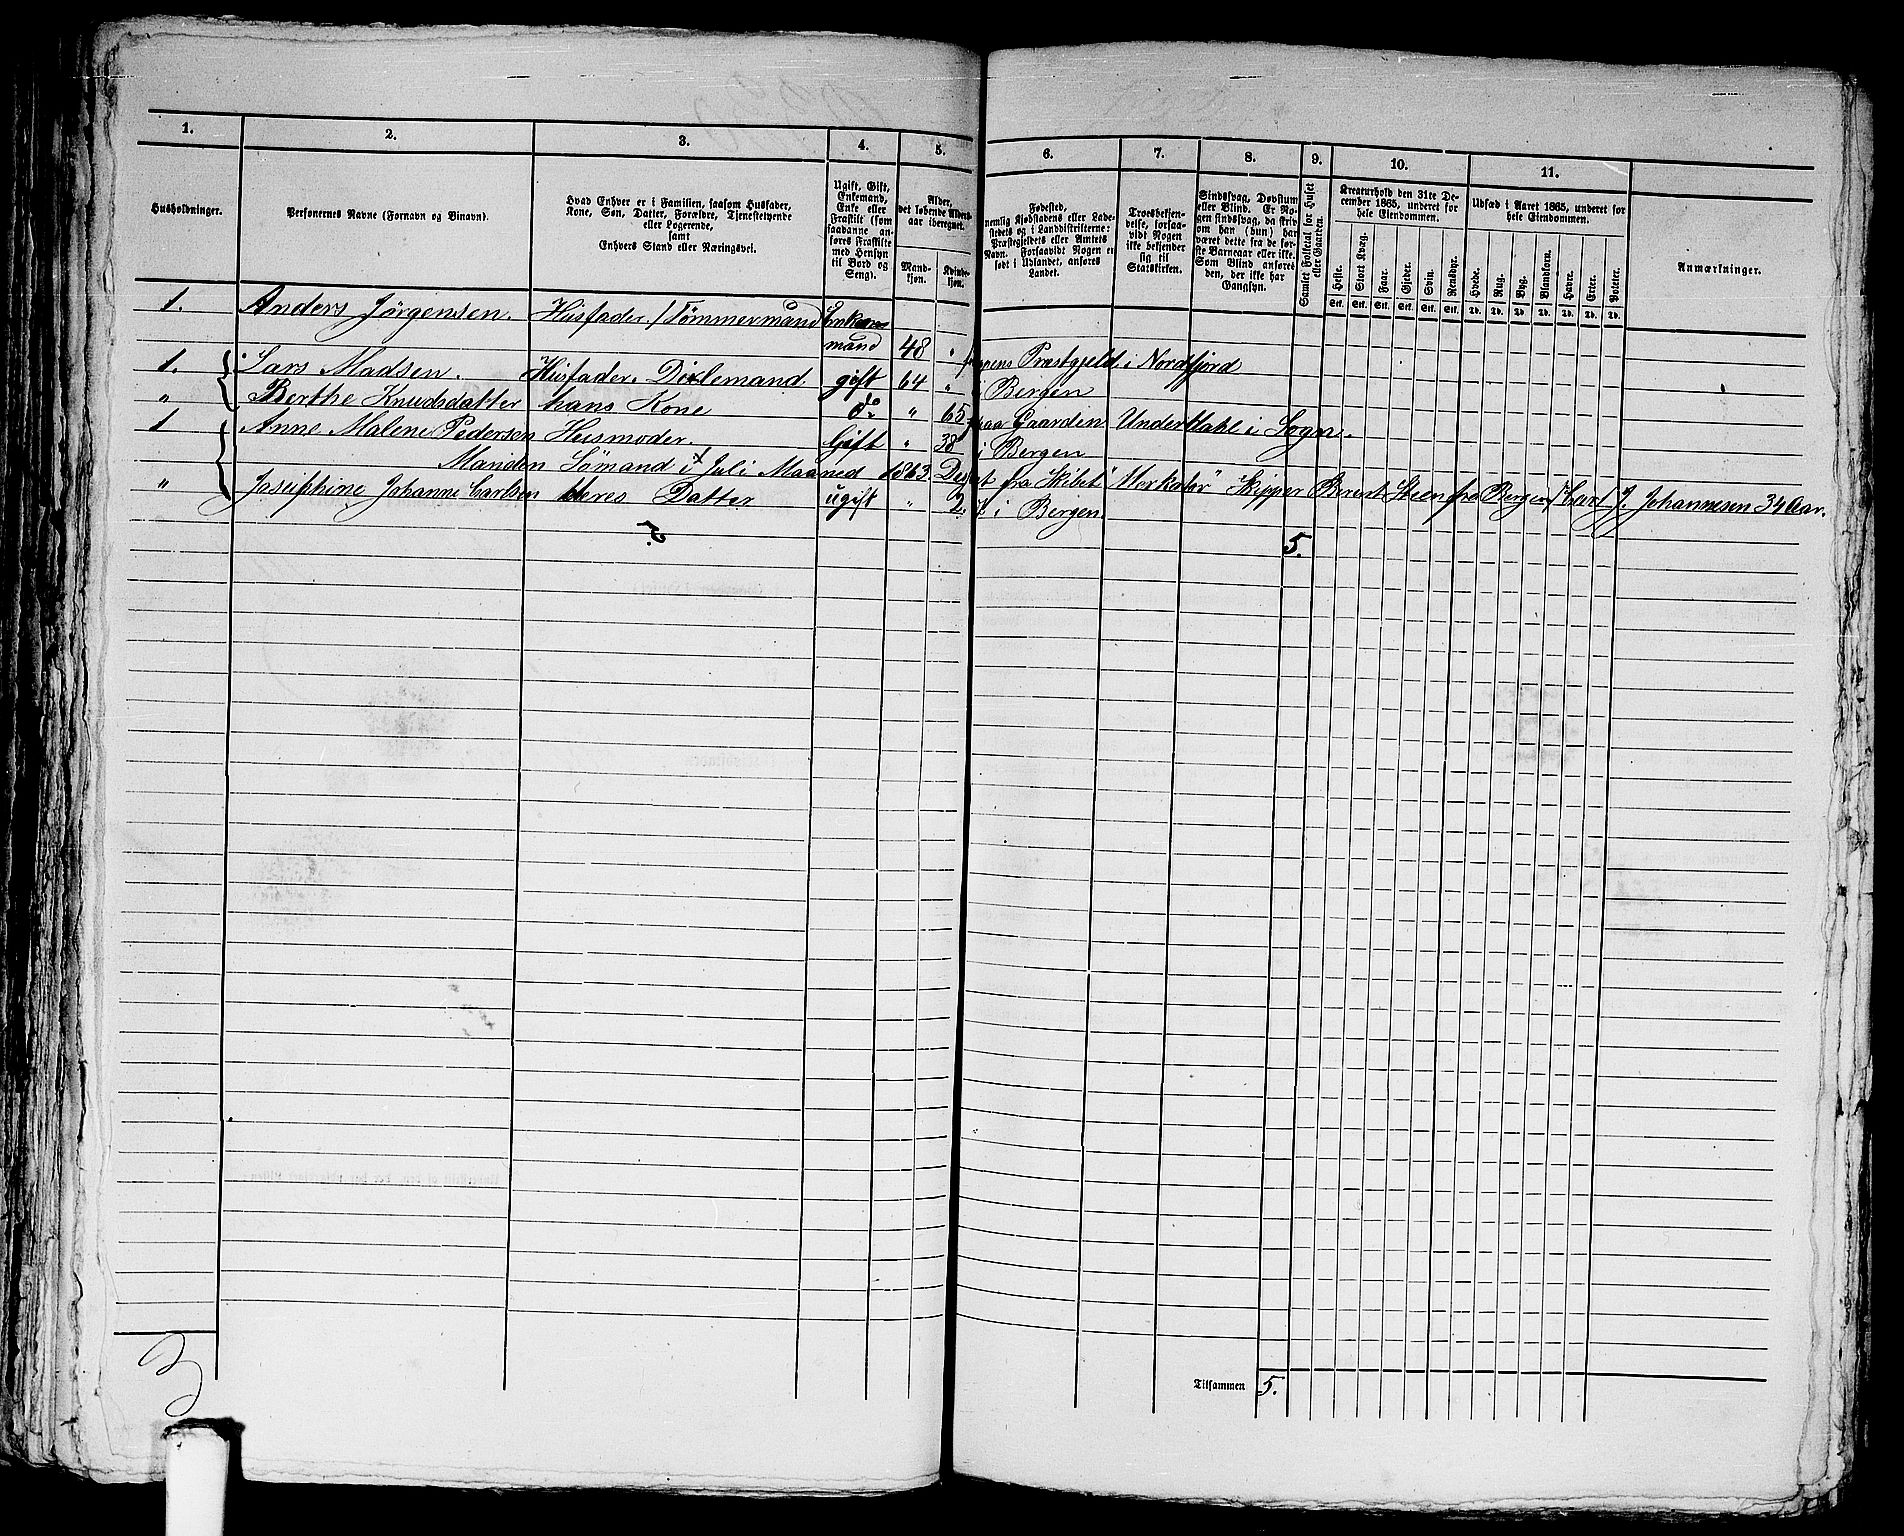 1. 2. 3. 4. 5. 6. 7. 8. 9. 10. 11.
Husholdninger.
Personernes Navne (Fornavn og Binavn).
Hvad Enhver er i Familien, saasom Husfader,
Kone, Søn, Datter, Forældre, Tjenestetyende
eller Logerende,
samt
Enhvers Stand eller Næringsvei.
Ugift, Gift,
Enkemand,
Enke eller
Fraskilt (som
saadanne an-
føres Fraskilte
med Hensyn
til Bord og
Seng).
Alder,
det løbende Alders-
aar iberegnet.
Mand-
kjøn.
Kvinde-
kjøn.
Fødested,
nemlig Kjøbstadens eller Lade-
stedets og i Landdistrikterne:
Præstegjeldets eller Amtets
Navn. Forsaavidt Nogen er
født i Udlandet, anføres
Landet.
Troesbekjen-
delse, forsaa-
vidt Nogen
ikke bekjender
sig til
Statskirken.
Sindssvag, Døvstum
eller Blind. Er No-
gen sindssvag, da skriv
om han (hun) har
været dette fra de før-
ste Barneaar eller ikke.
Som Blind anføres
den, der ikke har
Gangsyn.
Samlet Folketal for Huset
eller Gaarden.
Kreaturhold den 31te De-
cember 1865, underet for
hele Eiendommen.
Heste. Stort Kvæg. Faar. Gjeder. Svin. Rensdyr.
Stk. Stk. Stk. Stk. Stk. Stk.
Udsæd i Aaret 1865, underet for
hele Eiendommen.
Hvede. Rug. Byg. Blandkorn. Havre. Erter. Poteter.
Td. Td. Td. Td. Td. Td. Td.
Anmærkninger.
1. Anders Jørgensen. Husfader / Tømmermand Enke
mand 48 " Præstgjeld i Nordfjord
1. Lars Madsen. Husfader. gift 64 " i Bergen
" Berthe Knudsdatter hans Kone do " 65 paa Gaarden i Sogn.
1 Anne Malene Pedersen Husmoder. Gift " 38 i Bergen
Manden Sømand i Juli Maaned 1863. fra Skibet Skipper Steen fra Bergen J. Johannesen 34 Aar.
" Josephine Johanne Carlsen deres Datter ugift " 2 i Bergen.
5. 5.
Tilsammen 5.
3